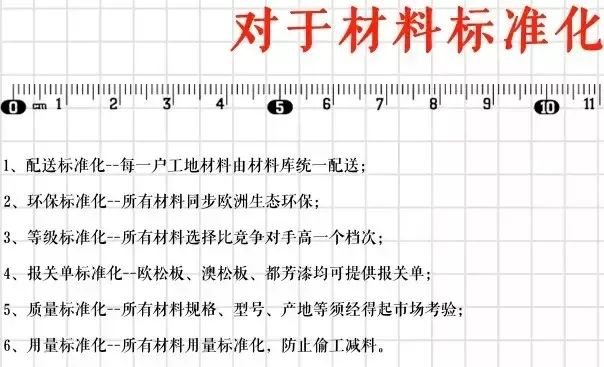 对于材料标准化
0 cm 1 2 3 4 5 6 7 8 9 10 11
1、配送标准化--每一户工地材料由材料库统一配送；
2、环保标准化--所有材料同步欧洲生态环保；
3、等级标准化--所有材料选择比竞争对手高一个档次；
4、报关单标准化--欧松板、澳松板、都芳漆均可提供报关单；
5、质量标准化--所有材料规格、型号、产地等须经得起市场考验；
6、用量标准化--所有材料用量标准化，防止偷工减料。